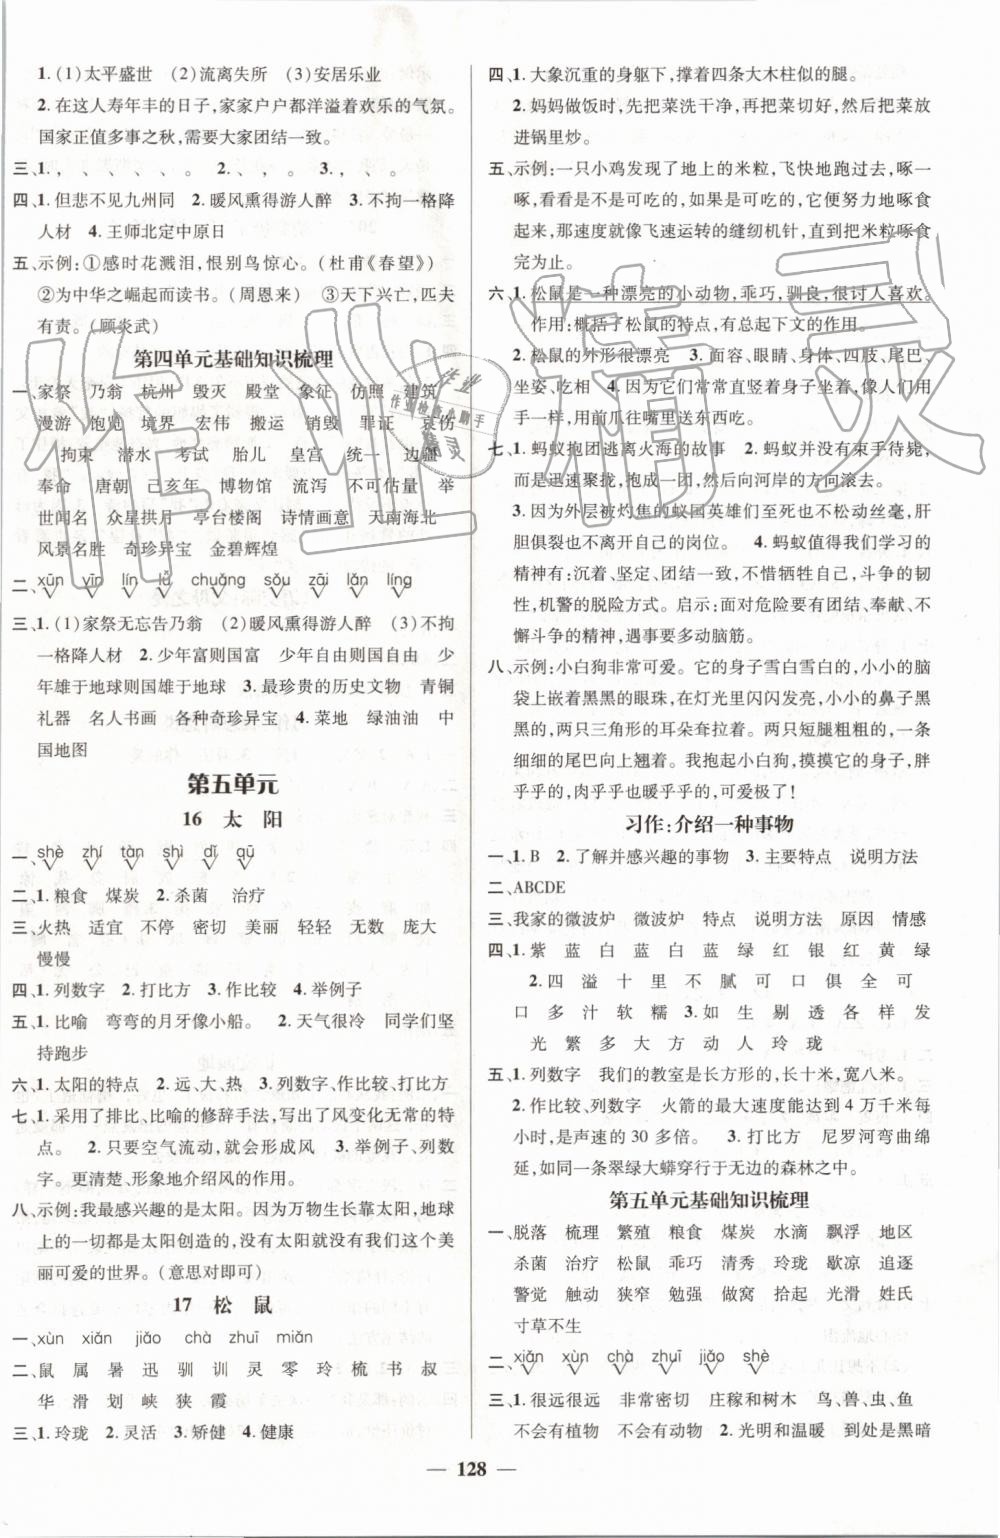 1.(1)太平盛世 (2)流离失所 (3)安居乐业
2.在这人寿年丰的日子,家家户户都洋溢着欢乐的气氛。
国家正值多事之秋,需要大家团结一致。
三、1.，、、、、。 2.、、。 3.，、。
四、1.但悲不见九州同 2.暖风熏得游人醉 3.不拘一格降
人材 4.王师北定中原日
五、示例:①感时花溅泪,恨别鸟惊心。(杜甫《春望》)
②为中华之崛起而读书。(周恩来) ③天下兴亡,匹夫
有责。(顾炎武)
第四单元基础知识梳理
一、家祭 乃翁 杭州 毁灭 殿堂 象征 仿照 建筑
漫游 饱览 境界 宏伟 搬运 销毁 罪证 哀伤
拘束 潜水 考试 胎儿 皇宫 统一 边疆
奉命 唐朝 己亥年 博物馆 流泻 不可估量 举
世闻名 众星拱月 亭台楼阁 诗情画意 天南海北
风景名胜 奇珍异宝 金碧辉煌
二、xūn yīn lín lǔ chuǎng sǒu zāi lǎn líng
三、1.(1)家祭无忘告乃翁 (2)暖风熏得游人醉 (3)不拘
一格降人材 2.少年富则国富 少年自由则国自由 少
年雄于地球则国雄于地球 3.最珍贵的历史文物 青铜
礼器 名人书画 各种奇珍异宝 4.菜地 绿油油 中
国地图
第五单元
16 太 阳
一、shè zhí tàn shì dǐ qū
二、1.粮食 煤炭 2.杀菌 治疗
三、火热 适宜 不停 密切 美丽 轻轻 无数 庞大
慢慢
四、1.列数字 2.打比方 3.作比较 4.举例子
五、1.比喻 弯弯的月牙像小船。 2.天气很冷 同学们坚
持跑步
六、1.太阳的特点 2.远、大、热 3.列数字、作比较、打比方
七、1.采用了排比、比喻的修辞手法,写出了风变化无常的特
点。 2.只要空气流动,就会形成风 3.举例子、列数
字。更清楚、形象地介绍风的作用。
八、示例:我最感兴趣的是太阳。因为万物生长靠太阳,地球
上的一切都是太阳创造的,没有太阳就没有我们这个美
丽可爱的世界。(意思对即可)
17 松 鼠
一、xùn xiǎn jiǎo chà zhuī miǎn
二、鼠 属 暑 迅 驯 训 灵 零 玲 梳 书 叔
华 滑 划 峡 狭 霞
三、1.玲珑 2.灵活 3.矫健 4.健康
四、1.大象沉重的身躯下,撑着四条大木柱似的腿。
2.妈妈做饭时,先把菜洗干净,再把菜切好,然后把菜放
进锅里炒。
五、示例:一只小鸡发现了地上的米粒,飞快地跑过去,啄一
啄,看看是不是可吃的,如果是可吃的,它便大力地啄食
起来,那速度就像飞速运转的缝纫机针,直到把米粒啄食
完为止。
六、1.松鼠是一种漂亮的小动物,乖巧,驯良,很讨人喜欢。
作用:概括了松鼠的特点,有总起下文的作用。
2.松鼠的外形很漂亮 3.面容、眼睛、身体、四肢、尾巴、
坐姿、吃相 4.因为它们常常直竖着身子坐着,像人们用
手一样,用前爪往嘴里送东西吃。
七、1.蚂蚁抱团逃离火海的故事 2.蚂蚁并没有束手待毙,
而是迅速聚拢,抱成一团,然后向河岸的方向滚去。
3.因为外层被灼焦的蚁国英雄们至死也不松动丝毫,肝
胆俱裂也不离开自己的岗位。 4.蚂蚁值得我们学习的
精神有:沉着、坚定、团结、不惜牺牲自己、斗争的韧
性、机警的脱险方式。启示:面对危险要有团结、奉献、不
懈斗争的精神,遇事要多动脑筋。
八、示例:小白狗非常可爱。它的身子雪白雪白的,小小的脑
袋上嵌着黑黑的眼珠,在灯光里闪闪发亮,小小的鼻子黑
黑的,两只三角形的耳朵耷拉着。四只短腿粗粗的,一条
细细的尾巴向上翘着。我抱起小白狗,摸摸它的身子,胖
乎乎的,肚皮也暖乎乎的,可爱极了!
习作:介绍一种事物
一、1.B 2.了解并感兴趣的事物 3.主要特点 说明方法
二、ABCDE
三、我家的微波炉 微波炉 特点 说明方法 原因 情感
四、1.紫 蓝 蓝 白 蓝 绿 红 银 红 黄 绿
2.四 溢 十 里 不 腻 可 口 俱 全 可
口 多 汁 软 糯 3.如 生 剔 透 各 样 发
光 繁 多 大 方 动 人 玲 珑
五、1.列数字 我们的教室是长方形的,长十米,宽八米。
2.作比较、列数字 火箭的最大速度能达到 4 万千米每
小时,是声速的 30 多倍。 3.打比方 尼罗河弯曲绵
延,如同一条翠绿大蟒穿行于无边的森林之中。
第五单元基础知识梳理
一、脱落 梳理 繁殖 粮食 煤炭 水滴 飘浮 地区
杀菌 治疗 松鼠 乖巧 清秀 玲珑 歇凉 追逐
警觉 触动 狭窄 勉强 做窝 拾起 光滑 姓氏
寸草不生
二、xiǎn xùn chà zhuī jiǎo shè
三、1.很远很远 非常密切 庄稼和树木 鸟、兽、虫、鱼
不会有植物 不会有动物 2.光明和温暖 到处是黑暗
— 128 —